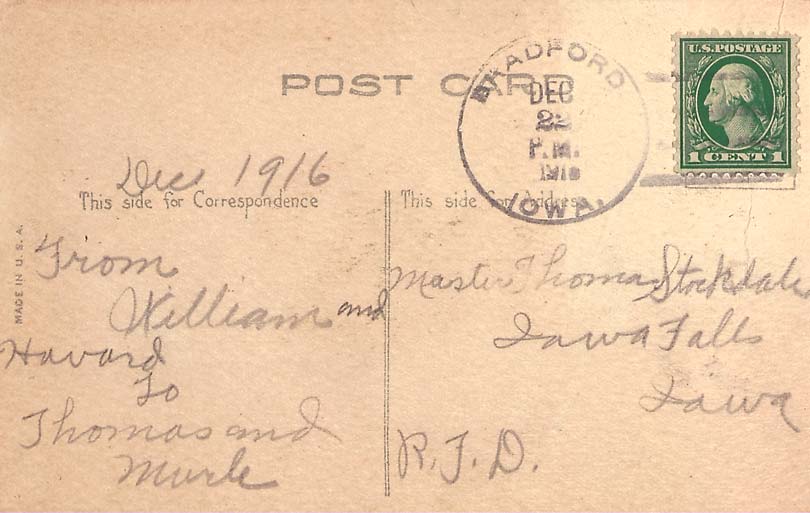 POST CARD
BRADFORD
DEC
22
P.M.
1916
IOWA.
U.S. POSTAGE
1 CENT 1
Dec 1916
This side for Correspondence
This side for Address
MADE IN U. S. A.
From
William and
Havard
To
Thomas and
Murle
Master Thomas Stockdale
Iowa Falls
Iowa
R.F.D.